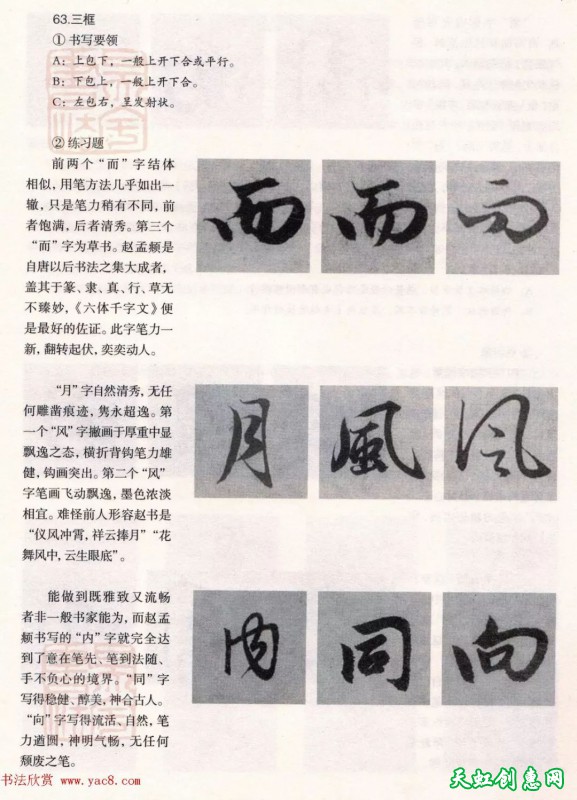 63.三框
① 书写要领
A：上包下，一般上开下合或平行。
B：下包上，一般上开下合。
C：左包右，呈发射状。
② 练习题
前两个“而”字结体
相似，用笔方法几乎如出一
辙，只是笔力稍有不同，前
者饱满，后者清秀。第三个
“而”字为草书。赵孟頫是
自唐以后书法之集大成者，
盖其于篆、隶、真、行、草无
不臻妙，《六体千字文》便
是最好的佐证。此字笔力一
新，翻转起伏，奕奕动人。
而 而 而
“月”字自然清秀，无任
何雕凿痕迹，隽永超逸。第
一个“风”字撇画于厚重中显
飘逸之态，横折背钩笔力雄
健，钩画突出。第二个“风”
字笔画飞动飘逸，墨色浓淡
相宜。难怪前人形容赵书是
“仪风冲霄，祥云捧月”“花
舞风中，云生眼底”。
月 風 风
能做到既雅致又流畅
者非一般书家能为，而赵孟
頫书写的“内”字就完全达
到了意在笔先、笔到法随、
手不负心的境界。“同”字
写得稳健、醇美，神合古人。
“向”字写得流活、自然，笔
力遒圆，神明气畅，无任何
颓废之笔。
内 同 向
书法欣赏 www.yac8.com
天虹创意网